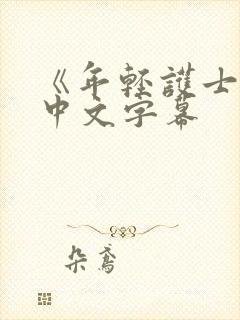 《年轻護士
中文字幕
朵鳶